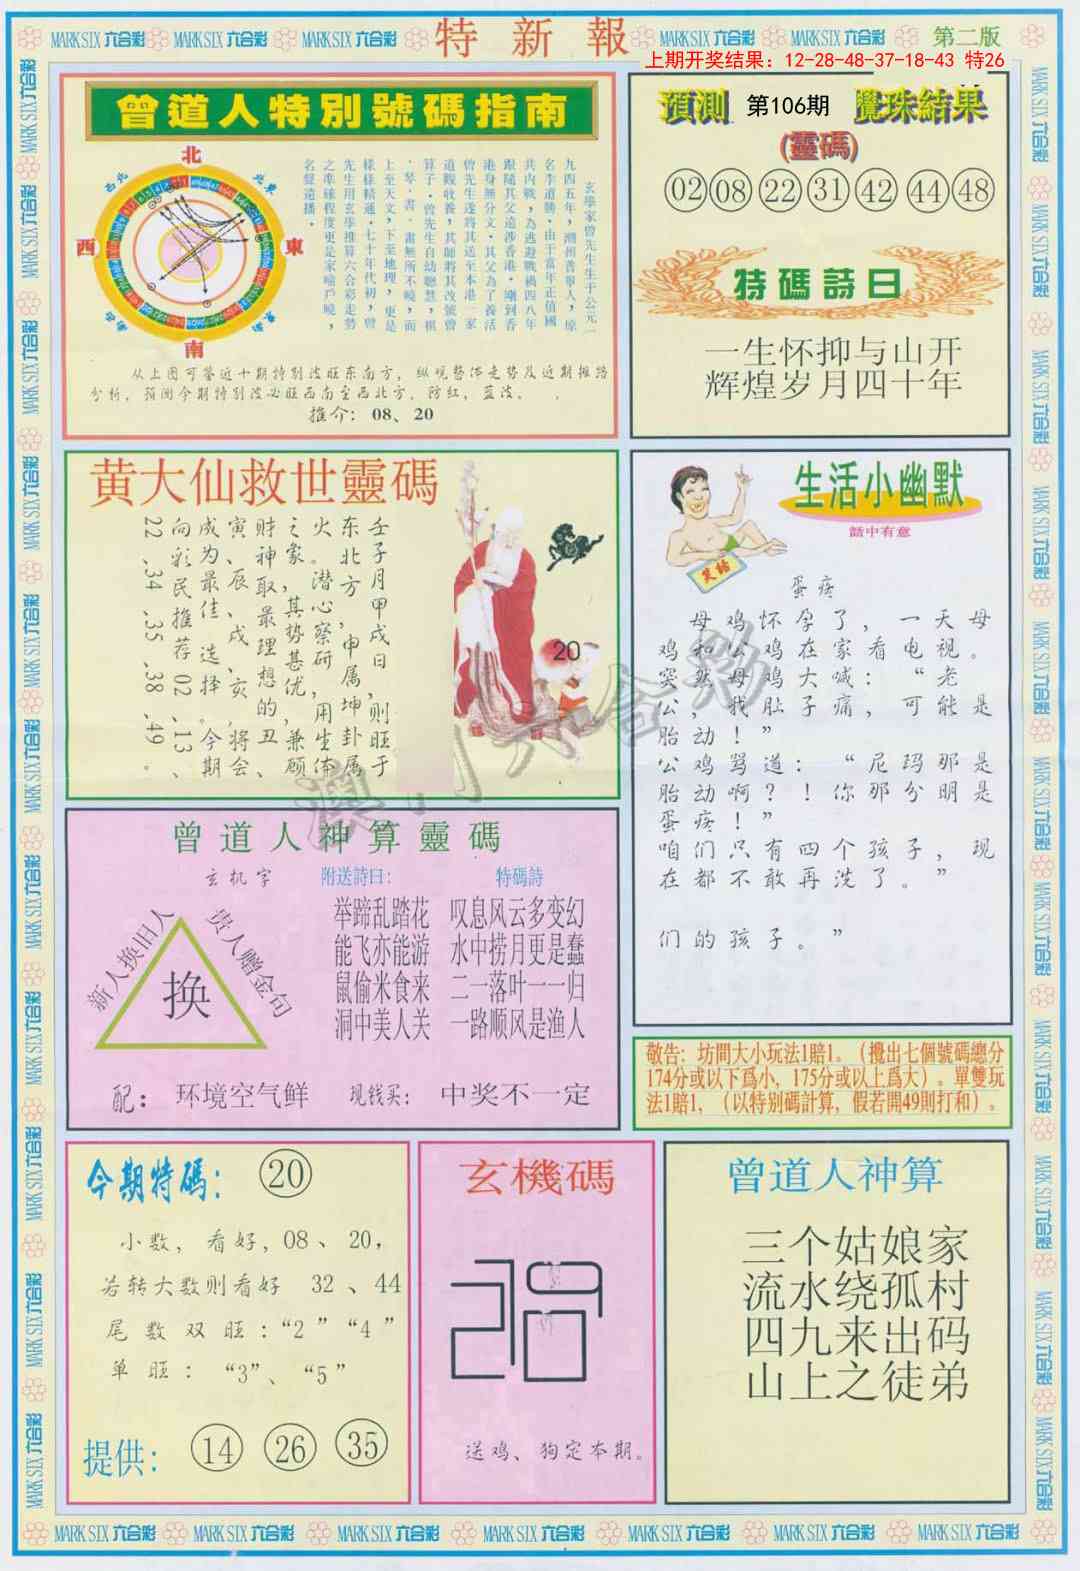 MARK SIX 六合彩 MARK SIX 六合彩 MARK SIX 六合彩 特新報 MARK SIX 六合彩 MARK SIX 六合彩 第二版
上期开奖结果：12-28-48-37-18-43 特26
曾道人特別號碼指南
北
東
南
西
西北
東北
東南
玄學家曾先生生于公元一
九四五年，潮州普寧人，原
名李道勝．由于當年正值國
共内戰，為逃避戰禍四八年
跟隨其父遠涉香港．剛到香
港身無分文．其父為了養活
曾先生遂將其送至本港一家
道觀收養，其師將其改號曾
算子．曾先生自幼聰慧，棋
．琴．書．畫無所不曉，而
上至天文，下至地理，更是
樣樣精通．七十年代初，曾
先生用玄學推算六合彩走勢
之準確程度更是家喻戶曉，
名聲遠播．
从上图可鉴近十期特别波旺东南方，纵观整体走势及近期推路
分析，预测今期特别波必旺西南至西北方，防红，蓝波。
推介：08、20
預測 第106期 攪珠結果
(靈碼)
02 08 22 31 42 44 48
特碼詩曰
一生怀抑与山开
辉煌岁月四十年
黄大仙救世靈碼
壬子月甲戌日，则旺于
东北方，申属坤卦属
火，潜心察研，用生体
之家。其势甚优，兼顾
财神取最理想的丑、
寅、辰、戌、亥，将会
成为最佳选择。今期
向彩民推荐02.13、
22.34.35.38.49。
20
生活小幽默
話中有意
笑話
蛋疼
母鸡怀孕了，一天母
鸡和公鸡在家看电视。
突然母鸡大喊：“老
公，我肚子痛，可能是
胎动！”
公鸡骂道：“尼玛那是
胎动啊？！你那分明是
蛋疼！”
咱们只有四个孩子，现
在都不敢再洗了。”
们的孩子。”
曾道人神算靈碼
玄机字
新人换旧人
贵人赠金句
换
附送詩曰：
举蹄乱踏花
能飞亦能游
鼠偷米食来
洞中美人关
特碼詩
叹息风云多变幻
水中捞月更是蠢
二一落叶一一归
一路顺风是渔人
配： 环境空气鲜 现钱买： 中奖不一定
敬告：坊間大小玩法1賠1。（攪出七個號碼總分
174分或以下爲小，175分或以上爲大）。單雙玩
法1賠1，（以特别碼計算，假若開49則打和）。
今期特碼： 20
小数，看好，08、20，
若转大数则看好 32、44
尾数双旺：“2”“4”
单旺：“3”、“5”
提供： 14 26 35
玄機碼
送鸡、狗定本期。
曾道人神算
三个姑娘家
流水绕孤村
四九来出码
山上之徒弟
MARK SIX 六合彩 MARK SIX 六合彩 MARK SIX 六合彩 MARK SIX 六合彩 MARK SIX 六合彩 MARK SIX 六合彩 MARK SIX 六合彩